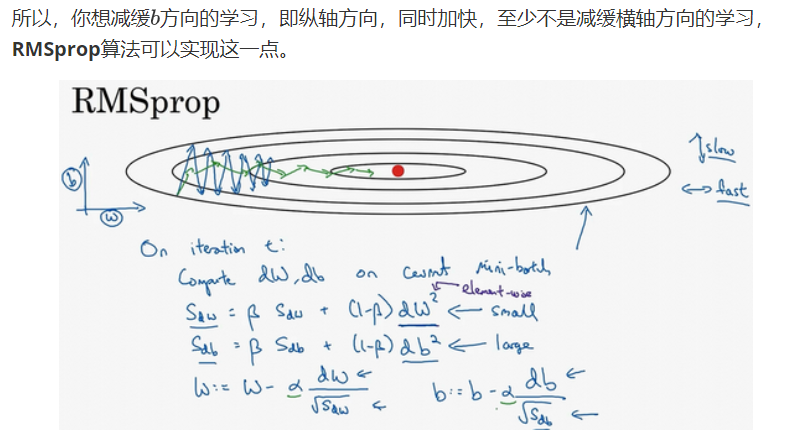 所以，你想减缓b方向的学习，即纵轴方向，同时加快，至少不是减缓横轴方向的学习，
RMSprop算法可以实现这一点。
RMSprop
↕slow
b
↔ fast
w
On iteration t:
Compute dW, db on current mini-batch
element-wise
S_dw = β S_dw + (1-β) dW² ← small
S_db = β S_db + (1-β) db² ← large
W := W - α dW/√S_dw ← b := b - α db/√S_db ←